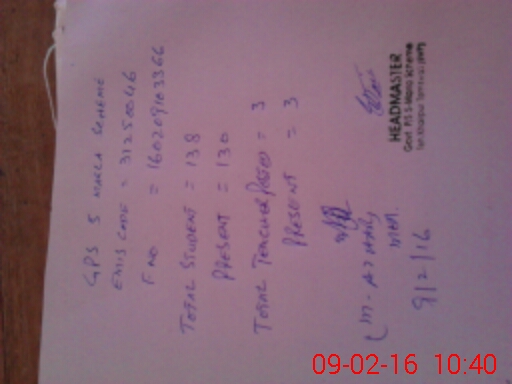 GPS 5 MARLA SCHEME
EMIS CODE = 31250046
F NO = 160209103366
TOTAL STUDENT = 138
PRESENT = 130
TOTAL TEACHER POSTED = 3
PRESENT = 3
HEADMASTER
Govt. P/S 5-Marla Scheme
9/2/16
09-02-16 10:40